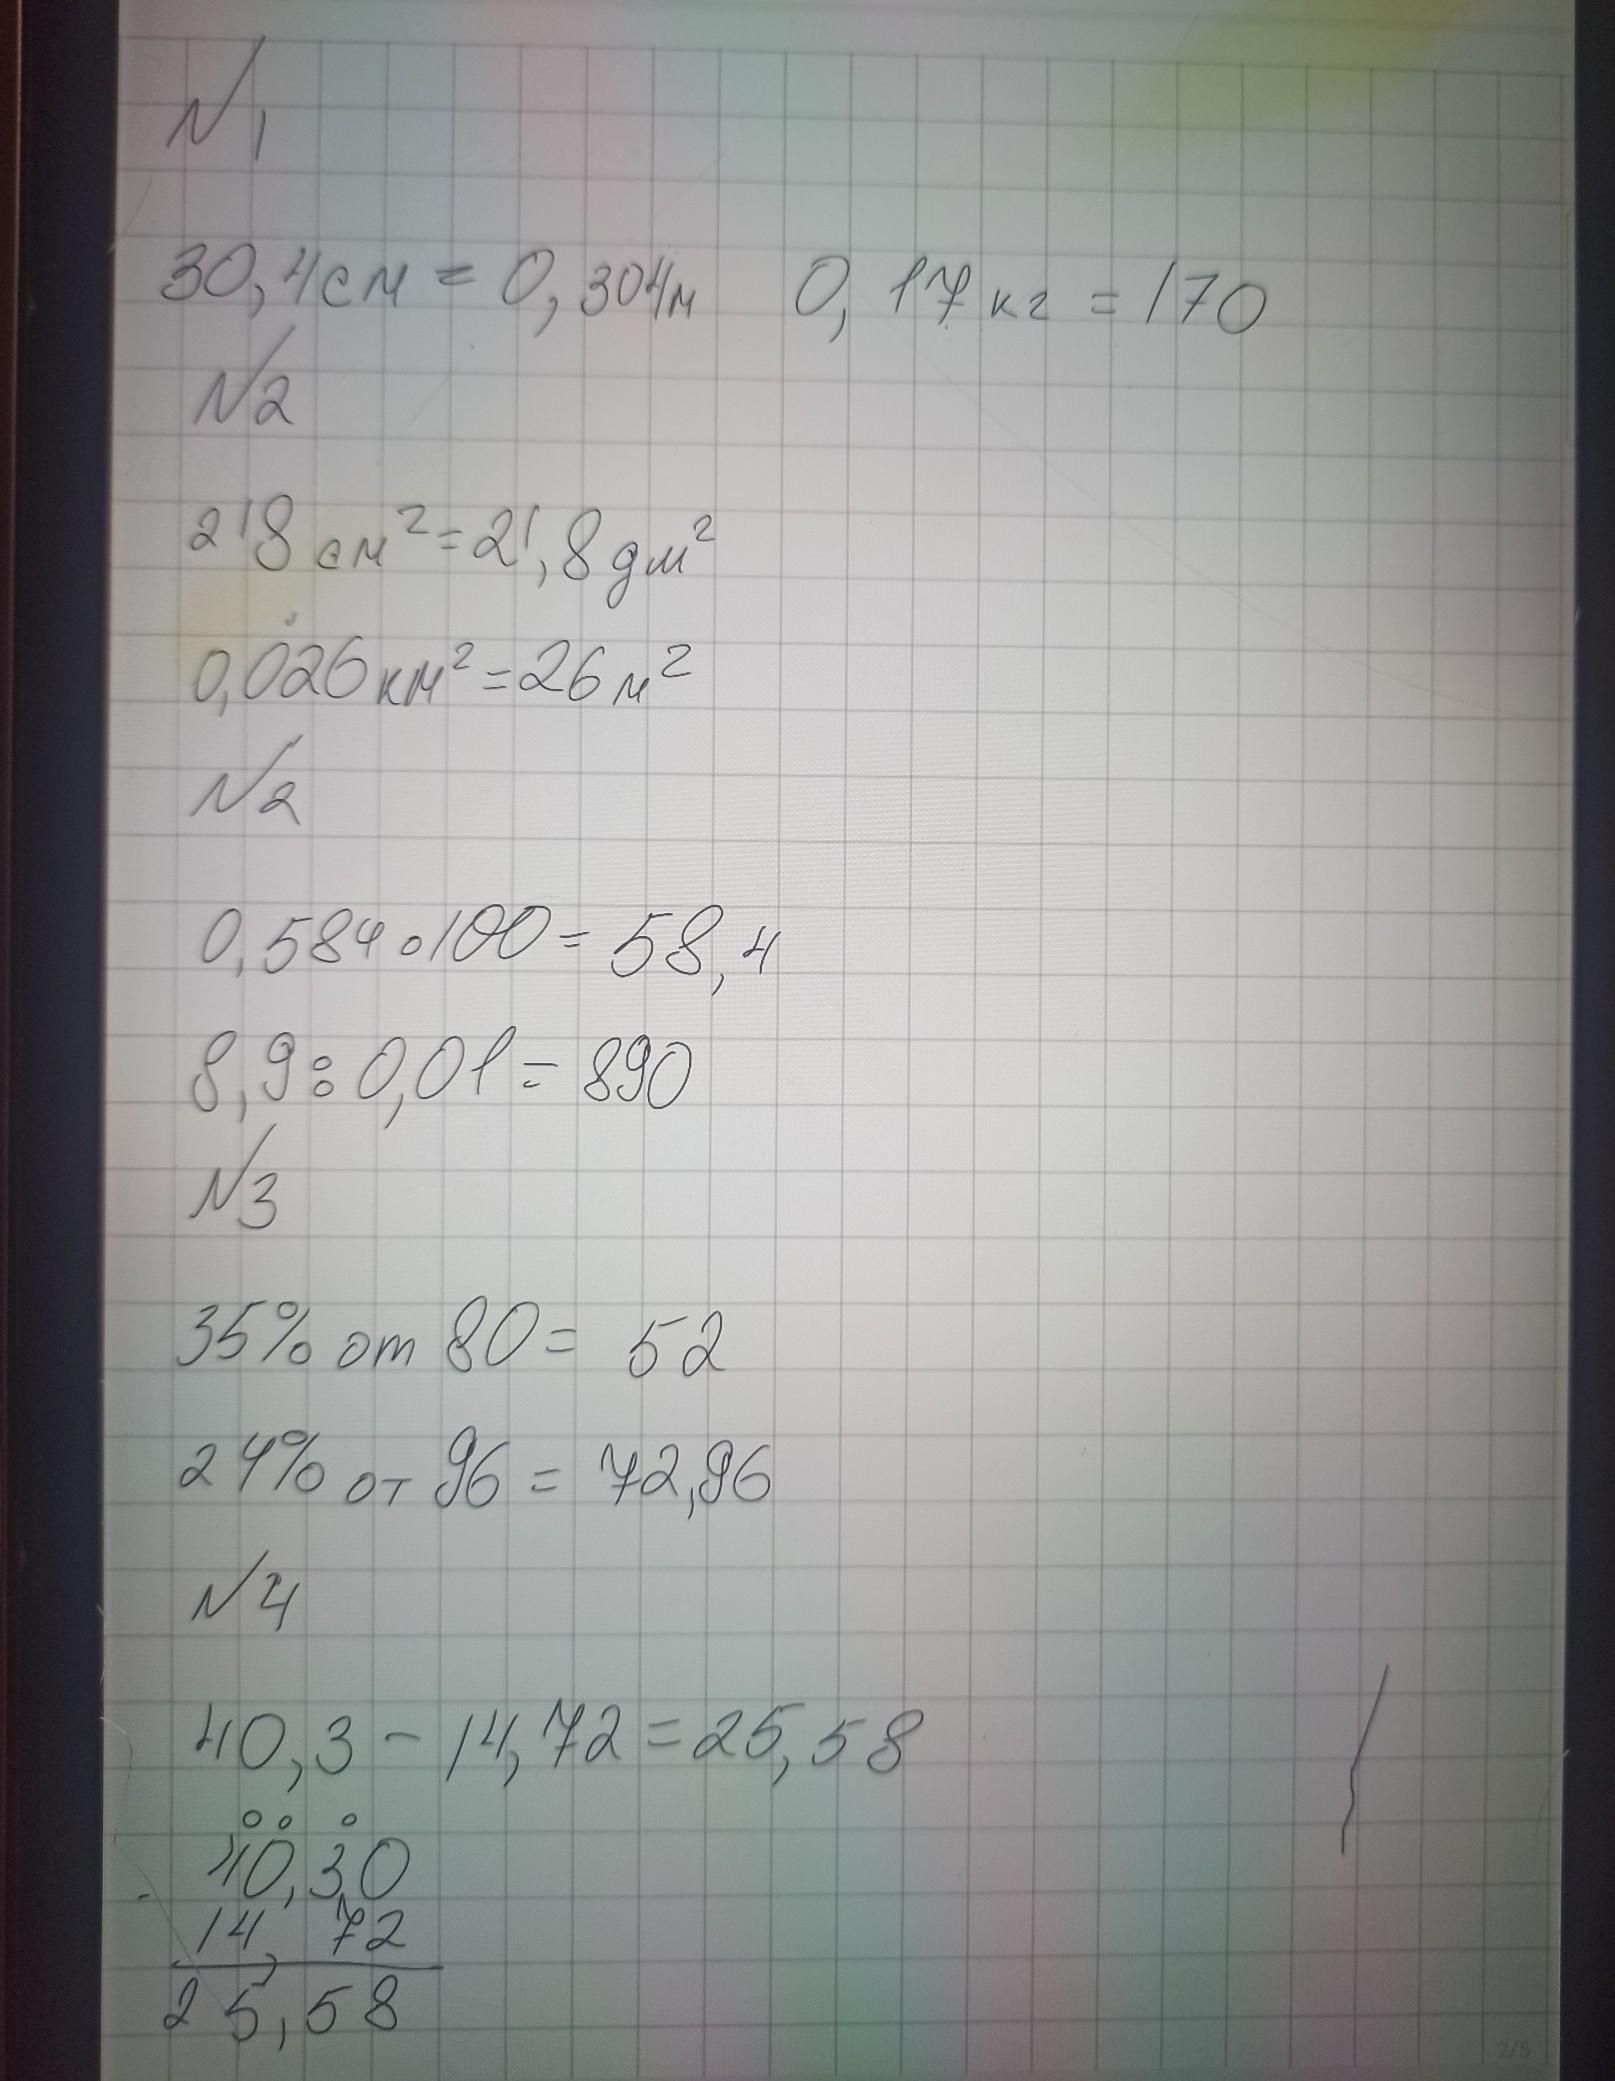 N1
30,4см = 0,304м 0,17кг = 170
N2
218 см² = 21,8 дм²
0,026 км² = 26 м²
N2
0,584 ∘ 100 = 58,4
8,9 : 0,01 = 890
N3
35% от 80 = 52
24% от 96 = 72,96
N4
40,3 - 14,72 = 25,58
40,30
-
14,72
25,58
2/5